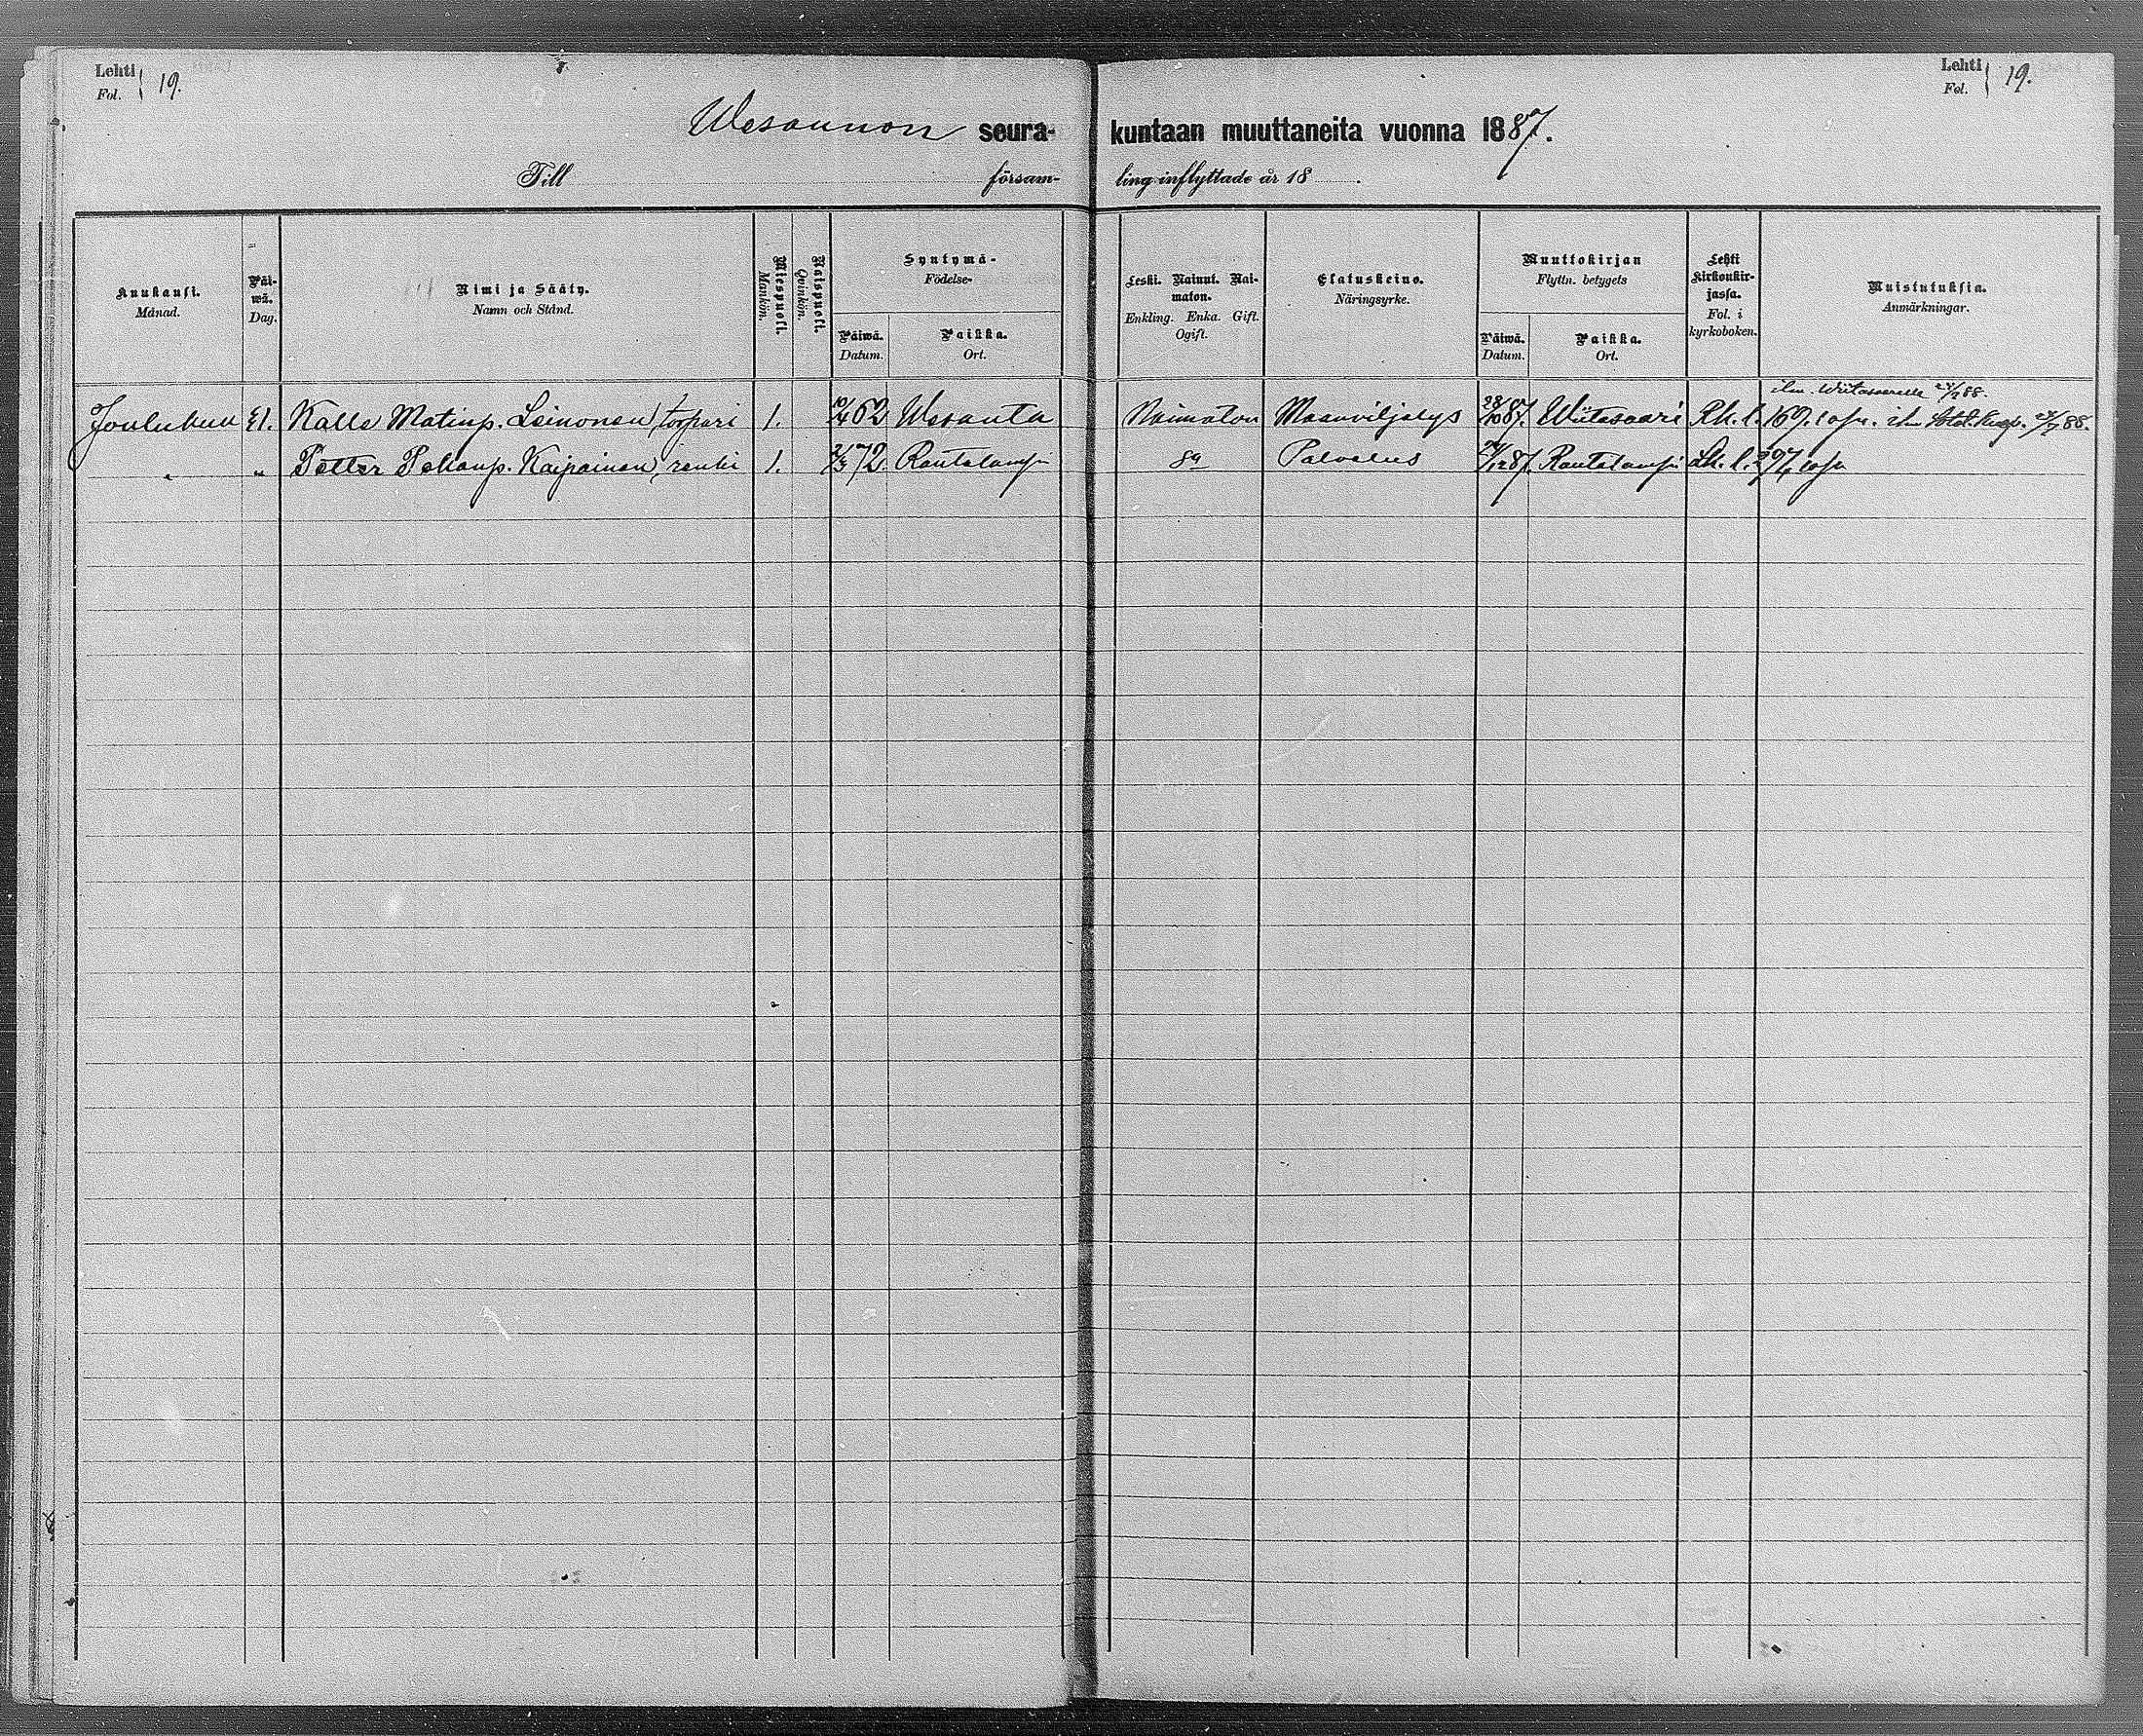 Lehti Fol. 19.
Lehti Fol. 19.
Wesannon seura- kuntaan muuttaneita vuonna 1887.
Till försam- ling inflyttade år 18 .
Kuukausi. Månad.
Päi- wä. Dag.
Nimi ja Sääty. Namn och Stånd.
Miespuoli. Mankön.
Naispuoli. Qvinkön.
Syntymä- Födelse-
Päiwä. Datum.
Paikka. Ort.
Leski. Nainut. Nai- maton. Enkling. Enka. Gift. Ogift.
Elatuskeino. Näringsyrke.
Muuttokirjan Flyttn. betygets
Päiwä. Datum.
Paikka. Ort.
Lehti Kirkonkir- jassa. Fol. i kyrkoboken.
Muistutuksia. Anmärkningar.
ilm. Wiitasaarelle
Joulukuu 31. Kalle Matinp. Leinonen, torpari 1. 10/4 62 Wesanta Naimaton Maanviljelys 28/10 87. Wiitasaari Rk. l. 169.
" " Petter Pekanp. Kaipainen, renki 1. 2/3 72. Rautalampi Palvelus Rautalampi Lk. l.